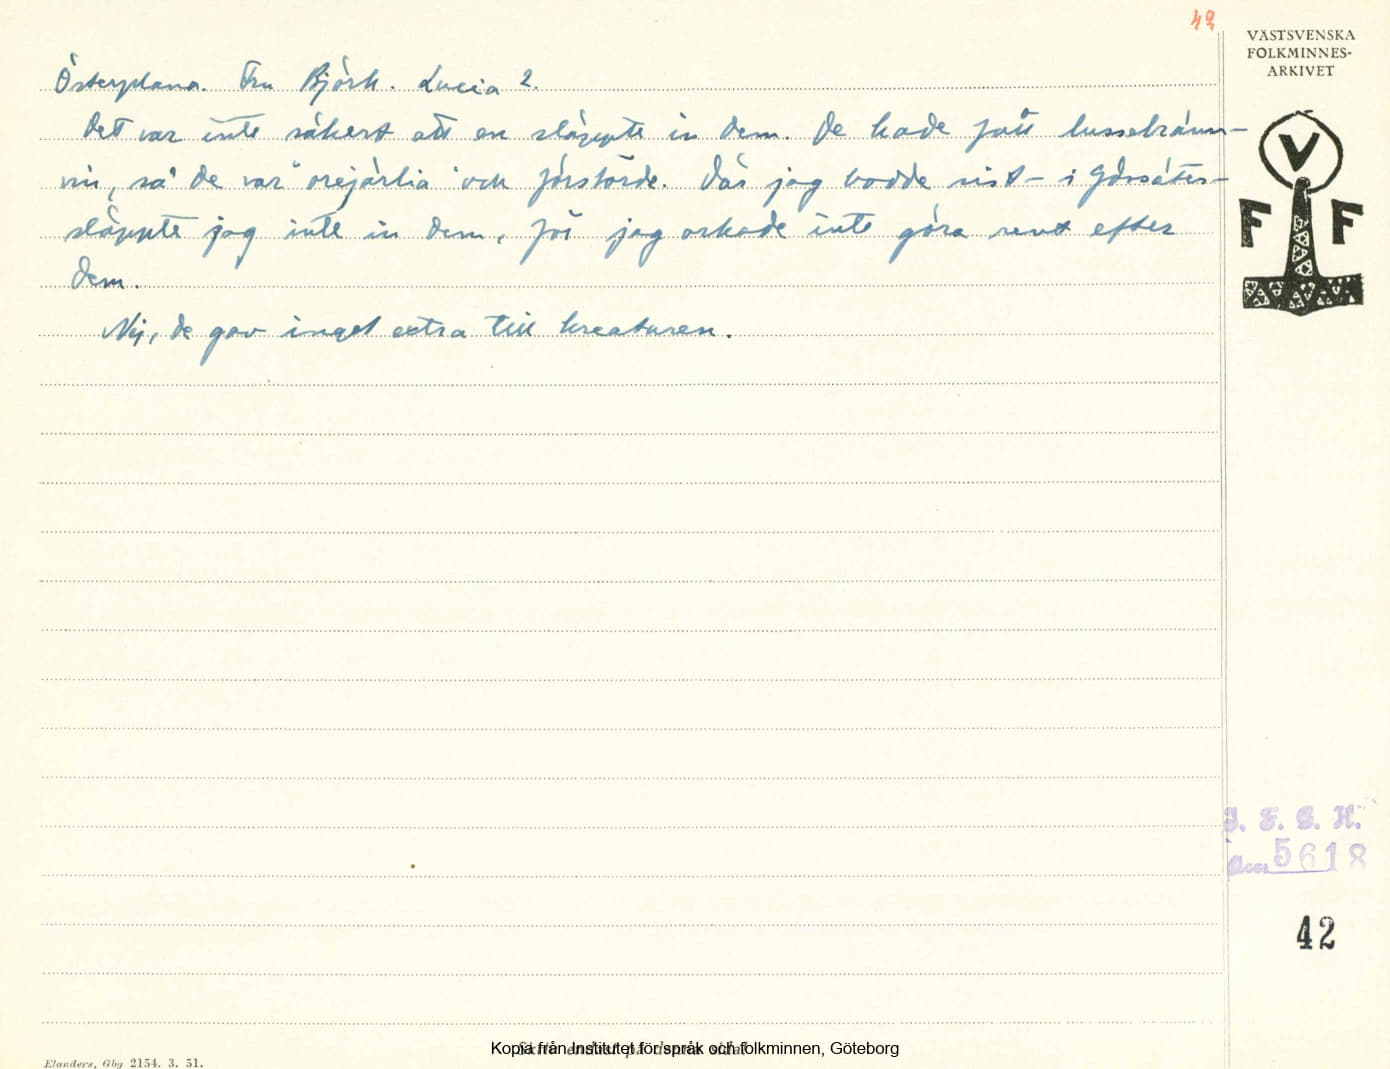 42
VÄSTSVENSKA
FOLKMINNES-
ARKIVET
Österplana. Fru Björk. Lucia 2.
Det var inte säkert att en släppte in dem. De hade fått lussebränn-
vin, så de var "orejärlia" och förstörde. Där jag bodde sist – i
släppte jag inte in dem, för jag orkade inte göra rent efter
dem.
Nej, de gav inget extra till kreaturen.
V
F F
I. F. G. H.
Acc. 5618
42
Kopia från Institutet för språk och folkminnen, Göteborg
Elanders, Gbg 2154. 3. 51.